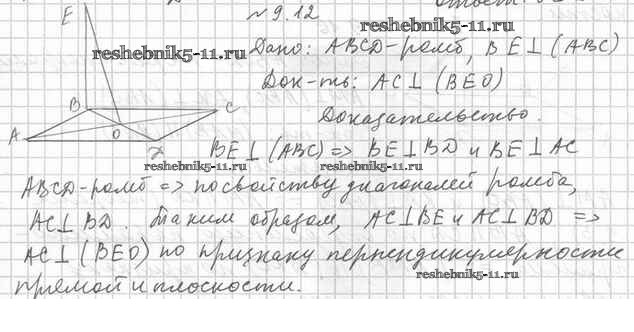 № 9.12
E
reshebnik5-11.ru
reshebnik5-11.ru
Дано: ABCD-ромб, BE⊥(ABC)
Док-ть: AC⊥(BEO)
B
C
Доказательство.
A
O
D
BE⊥(ABC) => BE⊥BD и BE⊥AC
reshebnik5-11.ru
reshebnik5-11.ru
ABCD-ромб => по свойству диагоналей ромба,
AC⊥BD. Таким образом, AC⊥BE и AC⊥BD =>
AC⊥(BEO) по признаку перпендикулярности
reshebnik5-11.ru
прямой и плоскости.